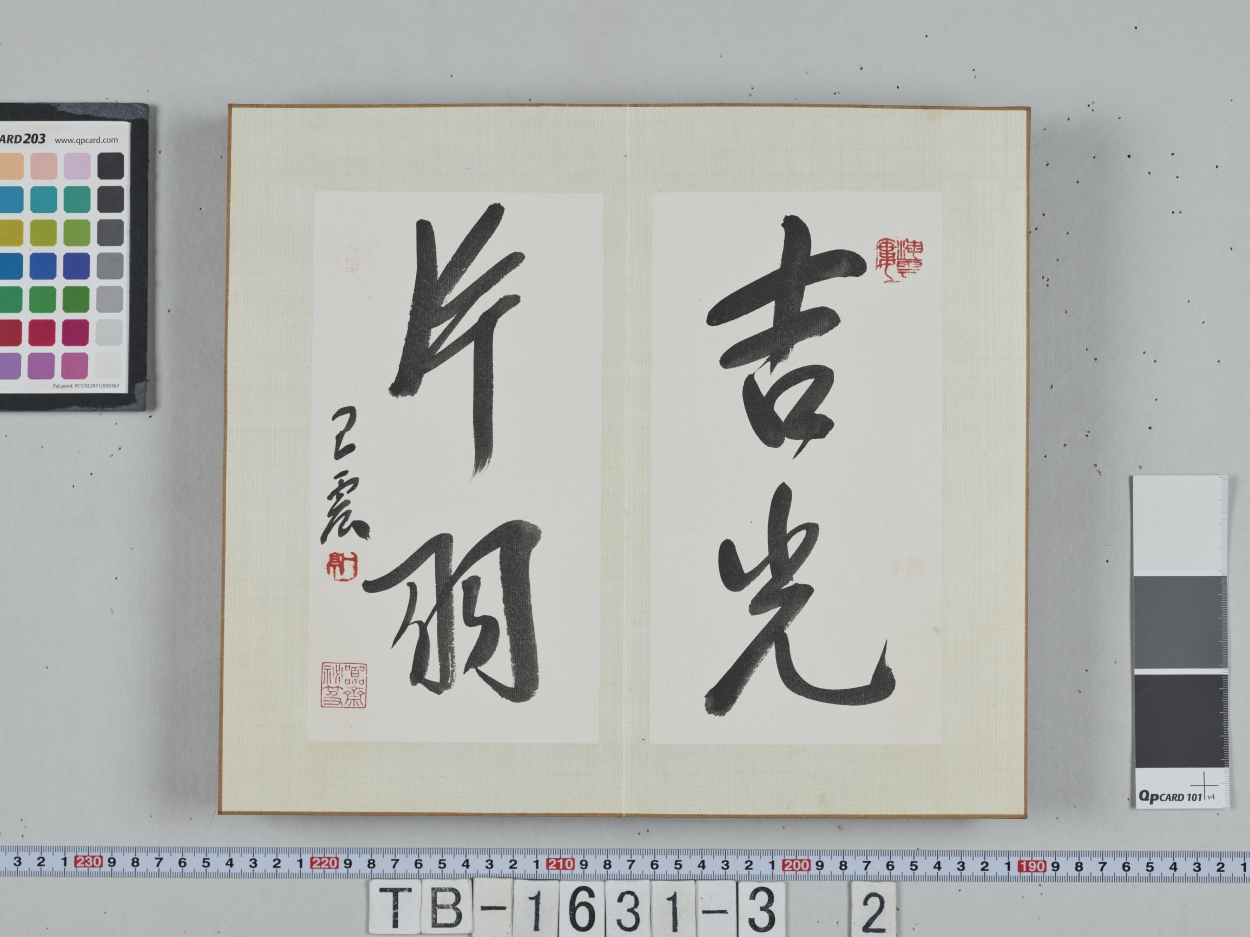 吉光
片羽
王震
CARD 203 www.qpcard.com
Pat.pend. PCT/SE2011/050367
QpCARD 101 v4
3 2 1 230 9 8 7 6 5 4 3 2 1 220 9 8 7 6 5 4 3 2 1 210 9 8 7 6 5 4 3 2 1 200 9 8 7 6 5 4 3 2 1 190 9 8 7 6 5 4 3 2 1
TB-1631-3 2